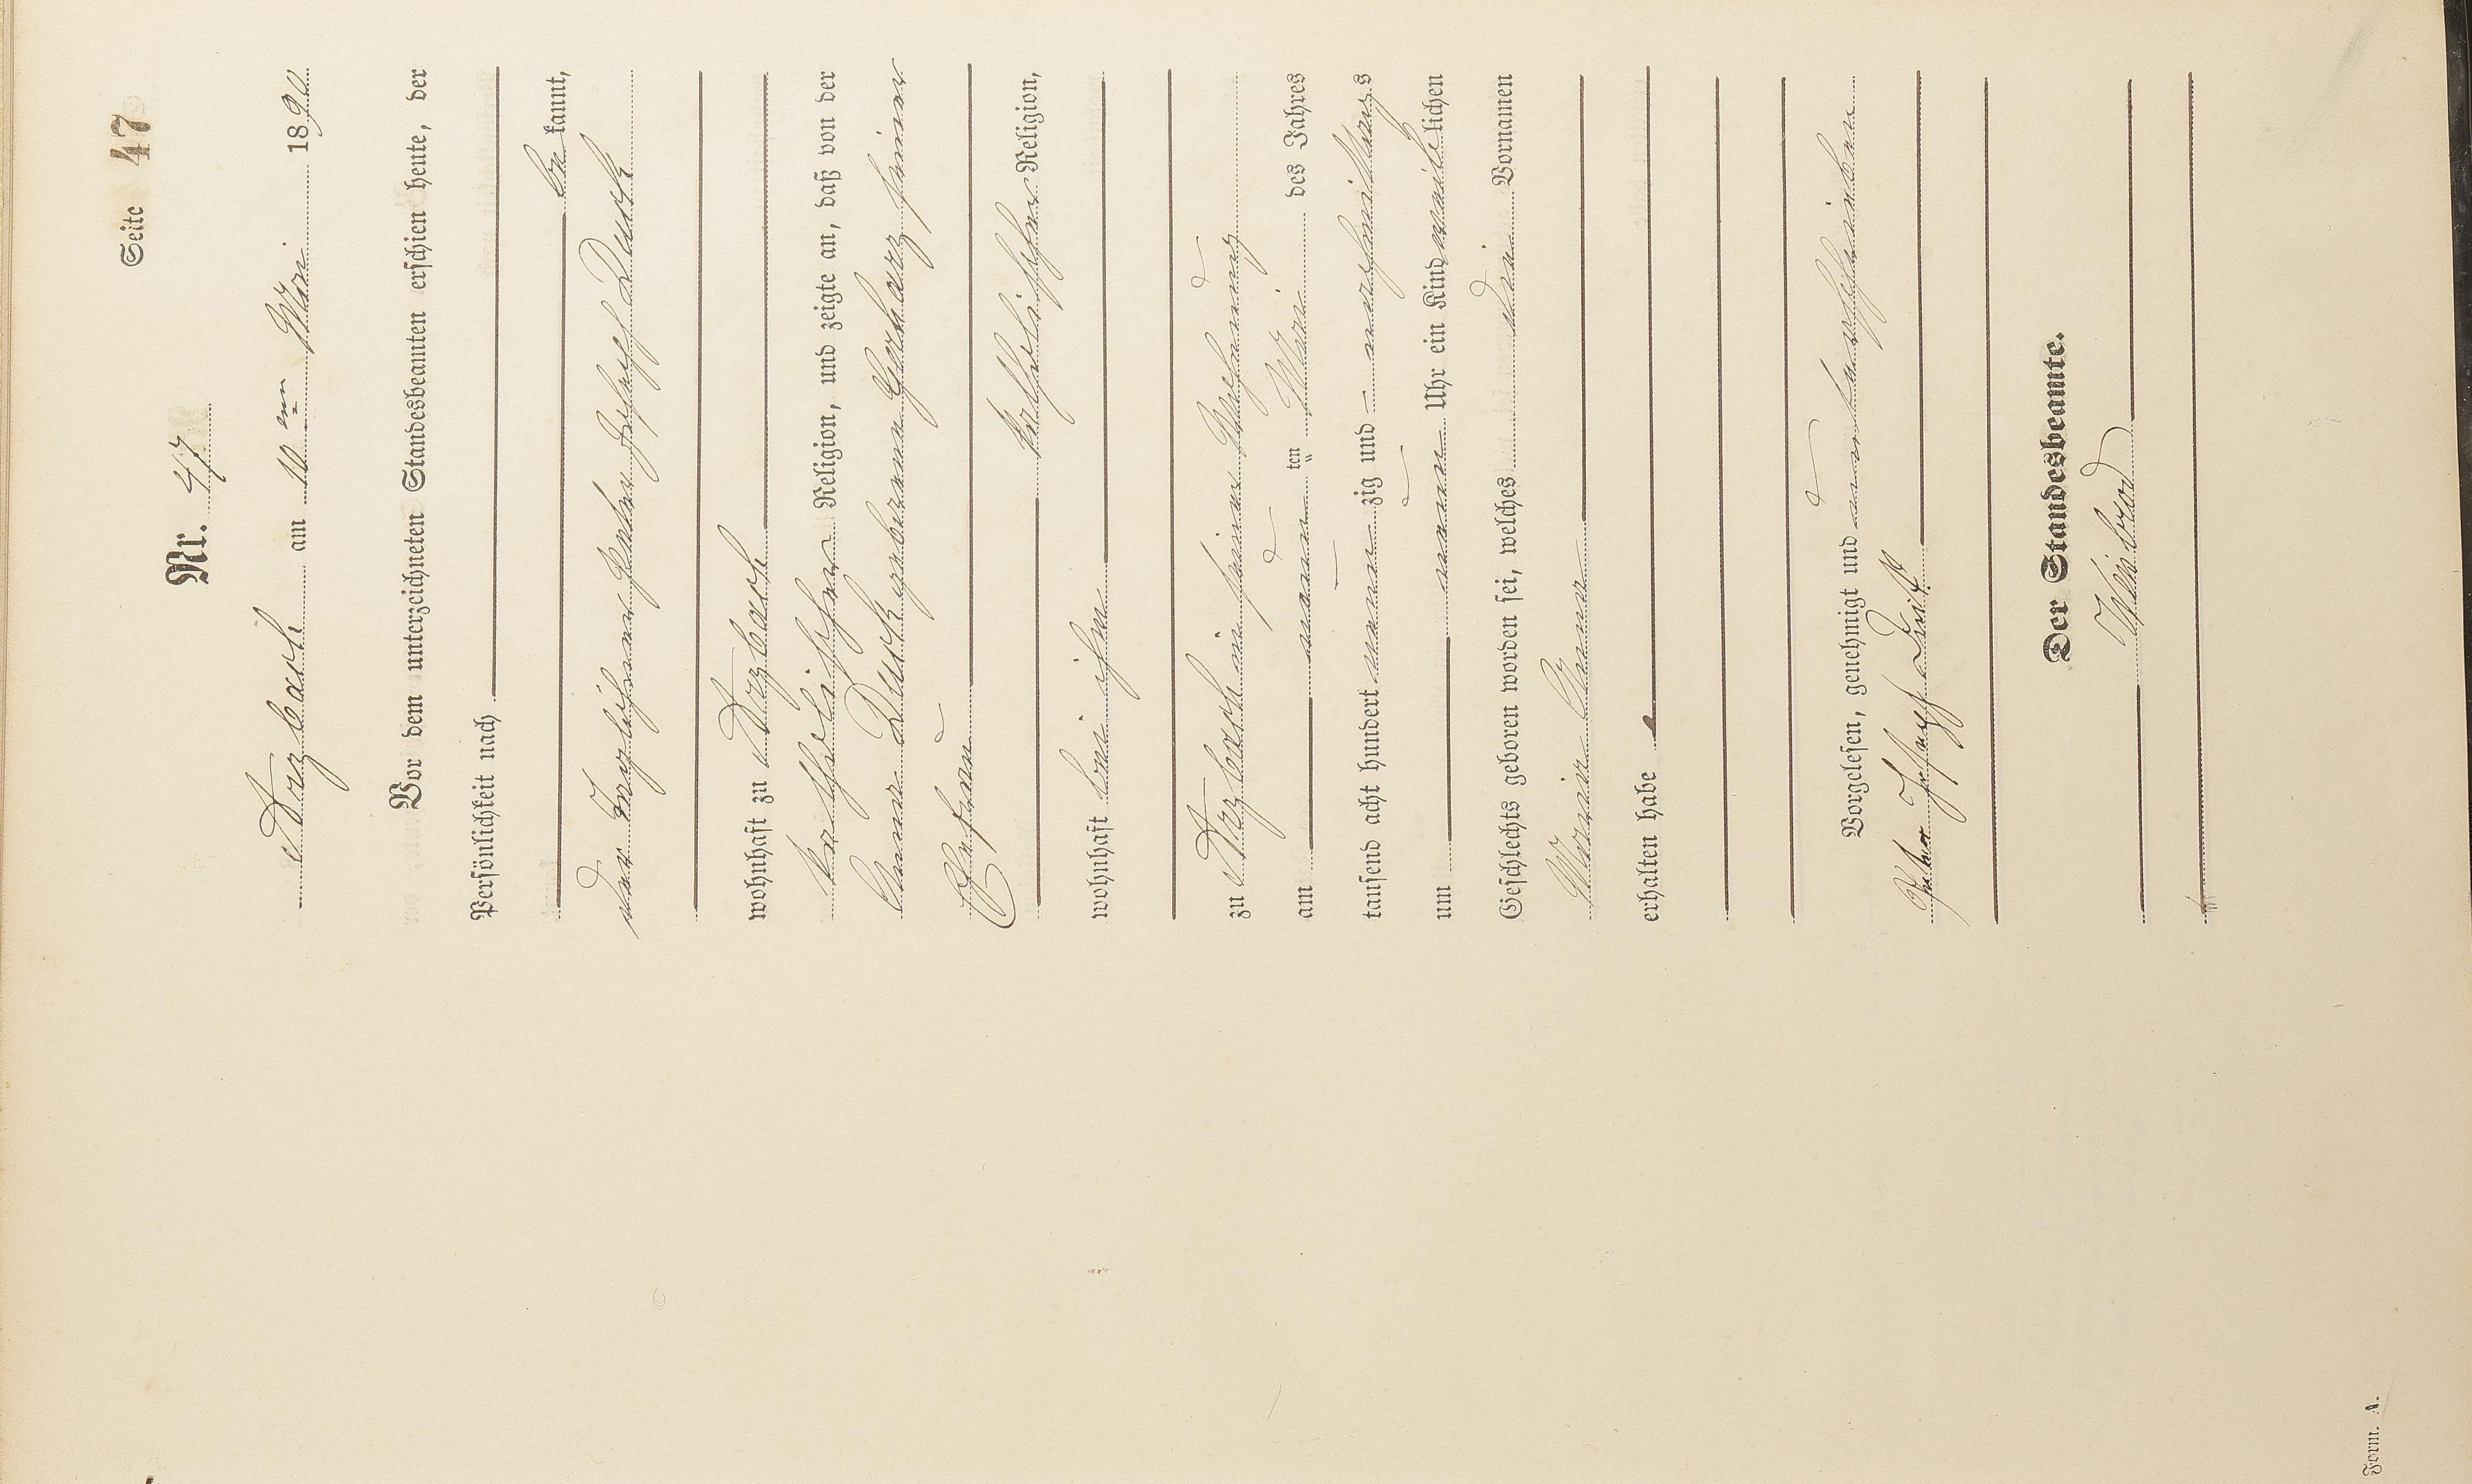 Seite 47
Nr. 47
Arzbach am 10ten Mai 1890
Vor dem unterzeichneten Standesbeamten erschien heute, der
Persönlichkeit nach
be kannt,
der Peter Joseph
wohnhaft zu Arzbach
katholischer Religion, und zeigte an, daß von der
Anna geborenen Gerharz seiner
Ehefrau
katholischer Religion,
wohnhaft bei ihm
zu Arzbach in seiner Wohnung
am neunten Mai des Jahres
tausend acht hundert neun zig und — nachmittags
um neun Uhr ein Kind weib lichen
Geschlechts geboren worden sei, welches die Vornamen
Maria Anna
erhalten habe
Vorgelesen, genehmigt und unterschrieben
Peter Joseph
Der Standesbeamte.
Form. A.